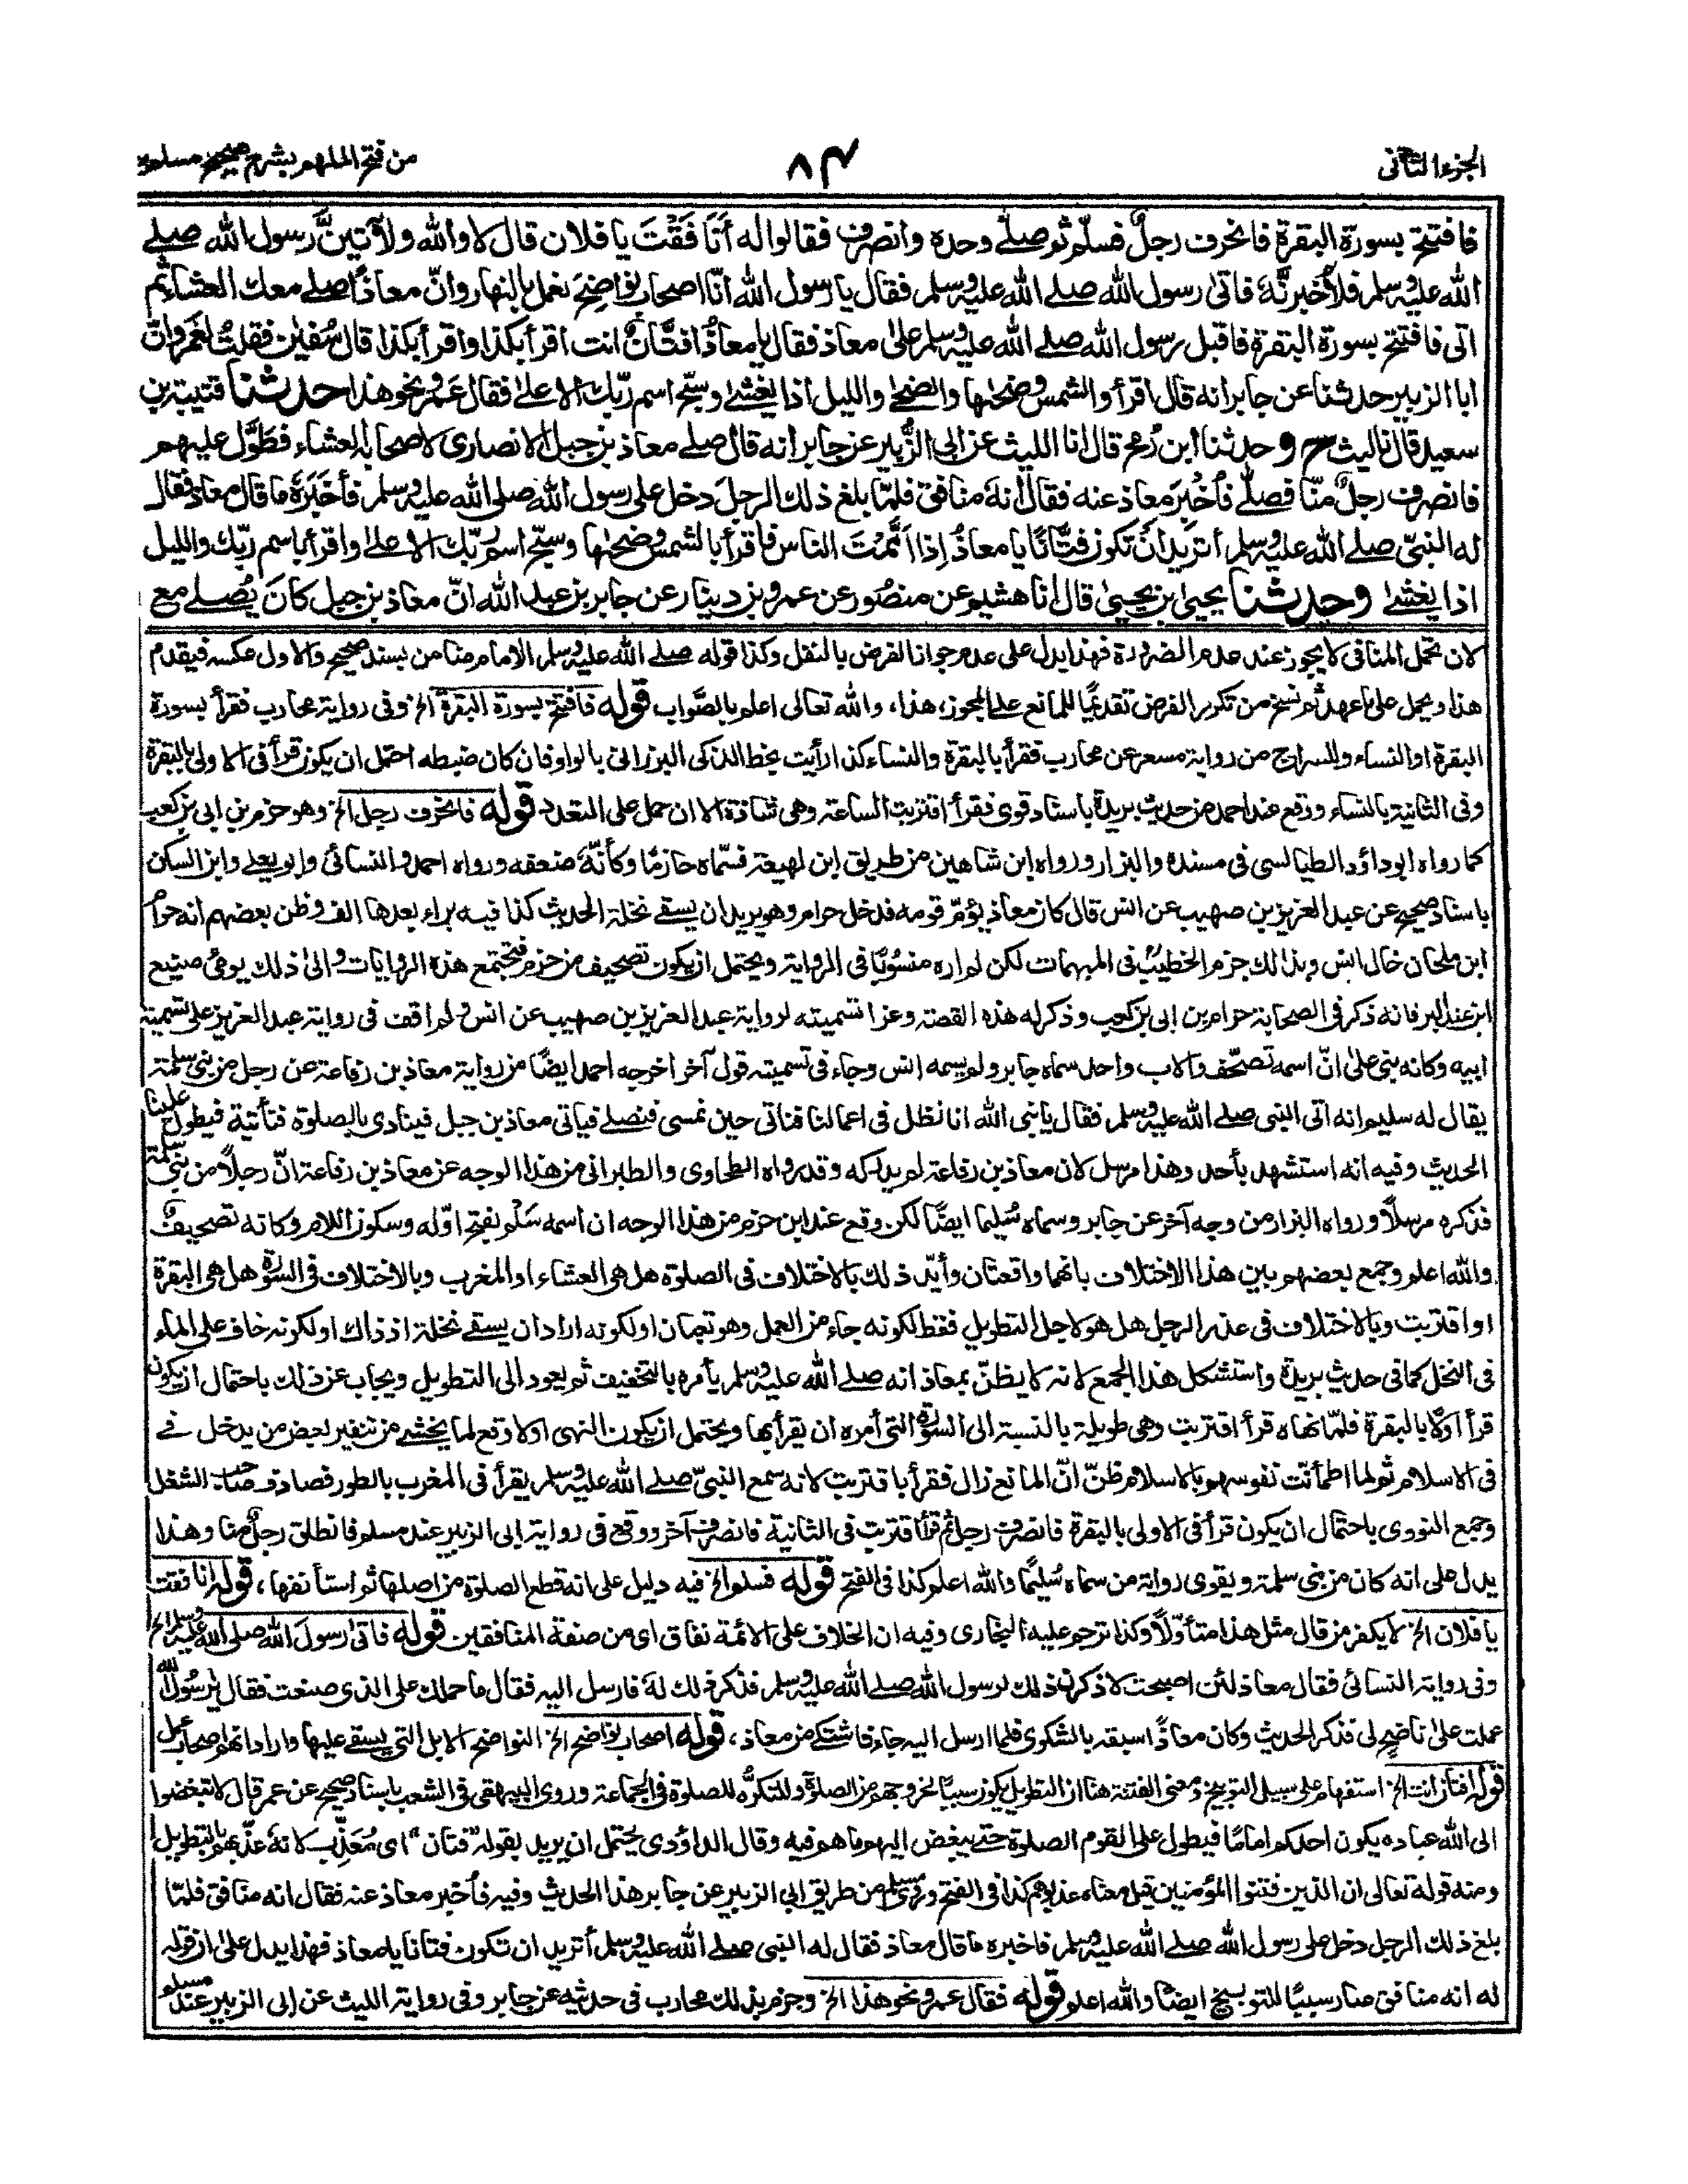 الجزء الثانی
٨٣
من فتح الملهم بشرح صحیح مسلم
فافتتح بسورة البقرة فانحرف رجلٌ فسلّم ثم صلّے وحده وانصرف فقالوا له أَنَافَقْتَ یا فلان قال لا والله ولآتینَّ رسول الله صلے
الله علیه وسلم فلأُخبرنَّهٗ فاتیٰ رسول الله صلے الله علیه وسلم فقال یا رسول الله انّا اصحاب نواضِحَ نعمل بالنهار وانّ معاذًا صلے معك العشاء ثم
اتی فافتتح بسورة البقرة فاقبل رسول الله صلے الله علیه وسلم علیٰ معاذ فقال یا معاذُ افتَّانٌ انت اقرأ بکذا واقرأ بکذا قال سُفیٰن فقلتُ لعَمرٍو انّ
ابا الزبیر حدثنا عن جابر انه قال اقرأ والشمس وضحٰها والضحیٰ واللیل اذا یغشے وسبّح اسم ربّك الاعلیٰ فقال عَمرٌو نحو هذا حدثنا قتیبة بن
سعید قال نا لیث ح وحدثنا ابن رُمح قال انا اللیث عن ابی الزُّبیر عن جابر انه قال صلے معاذ بن جبل الانصاری لاصحابه العشاء فطَوَّل علیهم
فانصرف رجلٌ منّا فصلّے فأُخْبِرَ معاذ عنه فقال انهٗ منافق فلمّا بلغ ذلك الرجلَ دخل علی رسول الله صلی الله علیه وسلم فأَخْبَرَهٗ ما قال معاذ فقال
له النبیّ صلے الله علیه وسلم أترید أَنْ تکون فتَّانًا یا معاذُ إذا أَمَّمْتَ الناس فاقرأ بالشمس وضحٰها وسبّح اسم ربّك الاعلیٰ واقرأ باسم ربّك واللیل
اذا یغشے وحدثنا یحییٰ ابن یحییٰ قال انا هشیم عن منصُور عن عمرو بن دینار عن جابر بن عبد الله انّ معاذ بن جبل کانَ یُصلے مع
لان تحمل المنافی لا یجوز عند عدم الضرورة فهذا یدل علی عدم جواز الفرض بالنفل وکذا قوله صلے الله علیه وسلم الامام ضامن بسند صحیح والاول عکسه فیقدم
هذا ویحمل علی ما عهد ثم نسخ من تکریر الفرض تقدیمًا للمانع علی المجوز، هذا، والله تعالی اعلم بالصَّواب قوله فافتتح بسورة البقرة الخ وفی روایة محارب فقرأ بسورة
البقرة او النساء وللسراج من روایة مسعر عن محارب فقرأ بالبقرة والنساء کذا رأیت بخط الذکی البرزالی بالواو فان کان ضبطه احتمل ان یکون قرأ فی الاولی بالبقرة
وفی الثانیة بالنساء ووقع عند احمد من حدیث بریدة باسناد قوی فقرأ اقتربت الساعة وهی شاذة الا ان حمل علی التعدد قوله فانحرف رجل الخ وهو حزم بن ابی بن کعب
کما رواه ابو داؤد الطیالسی فی مسنده والبزار ورواه ابن شاهین من طریق ابن لهیعة فسمّاه حازمًا وکأنّهٗ صحفه ورواه احمد والنسائی وابو یعلے وابن السکن
باسناد صحیح عن عبد العزیز بن صهیب عن انس قال کان معاذ یؤمّ قومه فدخل حرام وهو یرید ان یسقے نخلة الحدیث کذا فیه براء بعدها الف وظن بعضهم انه حرام
ابن ملحان خال انس وبذالك جزم الخطیبُ فی المبهمات لکن لم اره منسُوبًا فی الروایة ویحتمل ان یکون تصحیف من حزم فتجتمع هذه الروایات والیٰ ذلك یومئ صنیع
ابن عبد البر فانه ذکر فی الصحابة حرام بن ابی بن کعب وذکر له هذه القصة وعزا تسمیته لروایة عبد العزیز بن صهیب عن انس ولم اقف فی روایة عبد العزیز علی تسمیة
ابیه وکانه بنی علیٰ انّ اسمه تصحّف والاب واحد سماه جابر ولم یسمه انس وجاء فی تسمیته قول آخر اخرجه احمد ایضًا من روایة معاذ بن رفاعة عن رجل من بنی سلمة
یقال له سلیم انه اتی النبی صلے الله علیه وسلم فقال یا نبی الله انا نظل فی اعمالنا فناتی حین نمسی فنصلے فیاتی معاذ بن جبل فینادی بالصلوة فنأتیة فیطول علینا
الحدیث وفیه انه استشهد بأحد وهذا مرسل لان معاذ بن رفاعة لم یدرکه وقد رواه الطحاوی والطبرانی من هذا الوجه عن معاذ بن رفاعة انّ رجلاً من بنی سلمة
فذکره مرسلاً ورواه البزار من وجه آخر عن جابر وسماه سُلیما ایضًا لکن وقع عند ابن حزم من هذا الوجه ان اسمه سَلْم بفتح اوّله وسکون اللام وکانه تصحیفٌ
والله اعلم وجمع بعضهم بین هذا الاختلاف بانهما واقعتان وأید ذلك بالاختلاف فی الصلوة هل هی العشاء او المغرب وبالاختلاف فی السورة هل هی البقرة
او اقتربت وبالاختلاف فی عذر الرجل هل هو لاجل التطویل فقط لکونه جاء من العمل وهو تعبان او لکونه اراد ان یسقے نخلة اذ ذاك او لکونه خاف علی الماء
فی النخل کما فی حدیث بریدة واستشکل هذا الجمع لانه لا یظنّ بمعاذ انه صلے الله علیه وسلم یأمره بالتخفیف ثم یعود الی التطویل ویجاب عن ذلك باحتمال ان یکون
قرأ اوّلا بالبقرة فلمّا نهاه قرأ اقتربت وهی طویلة بالنسبة الی السورة التی أمره ان یقرأ بها ویحتمل ان یکون النهی اولا وقع لما یخشے من تنفیر بعض من یدخل فے
فی الاسلام ثم لما اطمأنت نفوسهم بالاسلام ظنّ انّ المانع زال فقرأ باقتربت لانه سمع النبیّ صلے الله علیه وسلم یقرأ فی المغرب بالطور فصادف صاحب الشغل
وجمع النووی باحتمال ان یکون قرأ فی الاولی بالبقرة فانصرف رجل ثم قرأ اقتربت فی الثانیة فانصرف آخر ووقع فی روایة ابی الزبیر عند مسلم فانطلق رجلٌ منا وهذا
یدل علی انه کان من بنی سلمة ویقوی روایة من سماه سُلیمًا والله اعلم کذا فی الفتح قوله فسلم الخ فیه دلیل علی انه قطع الصلوة من اصلها ثم استأنفها، قوله انافقت
یا فلان الخ لا یکفر من قال مثل هذا متأوّلاً وکذا ترجم علیه البخاری وفیه ان الخلاف علی الائمة نفاق ای من صفة المنافقین قوله فاتی رسولَ الله صلی الله علیه وسلم الخ
وفی روایة النسائی فقال معاذ لئن اصبحت لاذکرن ذلك لرسول الله صلے الله علیه وسلم فذکر ذلك لهٗ فارسل الیه فقال ما حملك علی الذی صنعت فقال یا رسُول الله
عملت علیٰ ناضحٍ لی فذکر الحدیث وکان معاذًا سبقه بالشکوی فلما ارسل الیه جاء فاشتکے من معاذ، قوله اصحاب نواضح الخ النواضح الابل التی یسقے علیها واراد انهم اصحاب عمل
قوله افتان انت الخ استفهام علی سبیل التوبیخ ومعنی الفتنة هنا ان التطویل یکون سببًا لخروجهم من الصلوة وللتکرُّه للصلوة فی الجماعة وروی البیهقی فی الشعب باسناد صحیح عن عمر قال لا تبغضوا
الی الله عباده یکون احدکم امامًا فیطول علی القوم الصلوة حتے یبغض الیهم ما هم فیه وقال الداؤدی یحتمل ان یرید بقوله "فتان" ای مُعَذِّب لانهٗ عذّبهم بالتطویل
ومنه قوله تعالی ان الذین فتنوا المؤمنین قیل معناه عذبوهم کذا فی الفتح وروی مسلم من طریق ابی الزبیر عن جابر هذا الحدیث وفیه فأخبر معاذ عنه فقال انه منافق فلمّا
بلغ ذلك الرجل دخل علی رسول الله صلے الله علیه وسلم فاخبره ما قال معاذ فقال له النبی صلے الله علیه وسلم أترید ان تکون فتانا یا معاذ فهذا یدل علیٰ ان قوله
له انه منافق صار سببًا للتوبیخ ایضًا والله اعلم قوله فقال عمرو نحو هذا الخ وجزم بذلك محارب فی حدیثه عن جابر وفی روایة اللیث عن ابی الزبیر عند مسلم